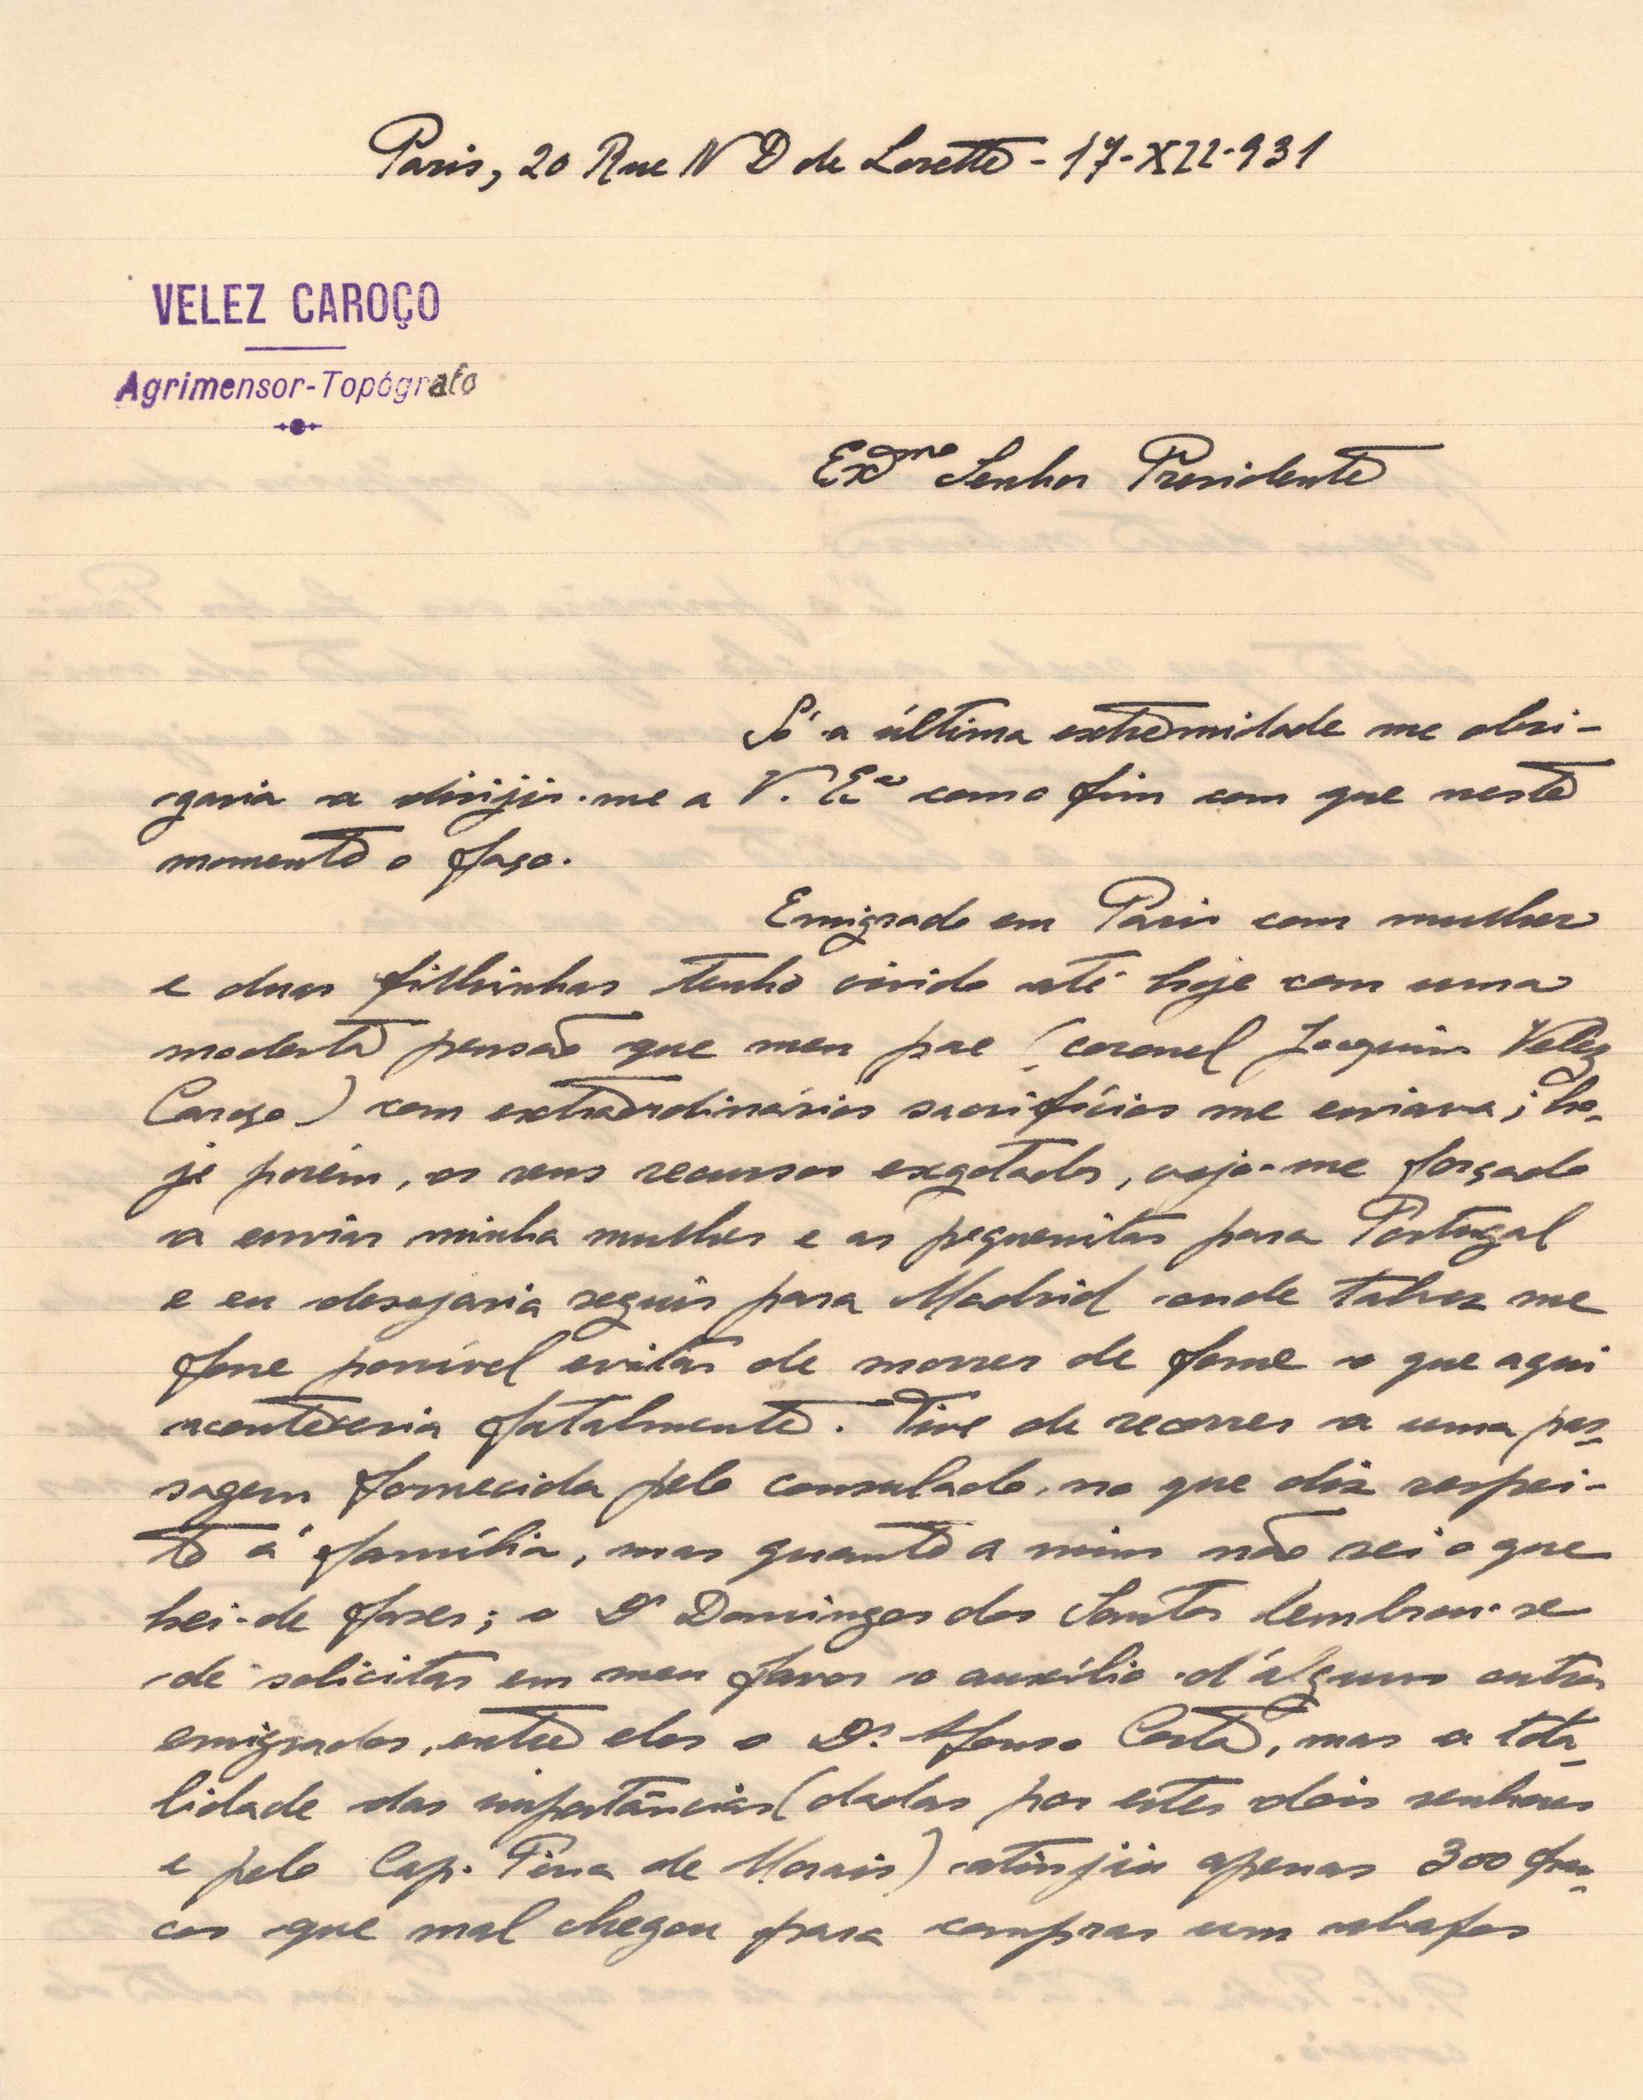 Paris, 20 Rue N D de Lorette - 17-XII-931
VELEZ CAROÇO
Agrimensor-Topógrafo
Exmo Senhor Presidente
Só a última extremidade me obri-
garia a dirijir-me a V. Exa com o fim com que neste
momento o faço.
Emigrado em Paris com mulher
e duas filhinhas tenho vivido até hoje com uma
modesta pensão que meu pae (coronel Joaquim Velez
Caroço) com extraordinários sacrifícios me enviava; ho-
je porém, os seus recursos exgotados, vejo-me forçado
a enviar minha mulher e as pequenitas para Portugal
e eu desejaria seguir para Madrid onde talvez me
fosse possível evitar de morrer de fome o que aqui
aconteceria fatalmente. Tive de recorrer a uma pas-
sagem fornecida pelo consulado, no que diz respei-
to á família, mas quanto a mim não sei o que
hei-de fazer; o Dr Domingos dos Santos lembrou-se
de solicitar em meu favor o auxílio d'alguns outros
emigrados, entre eles o Dr. Afonso Costa, mas a tota-
lidade das importâncias (dadas por estes dois senhores
e pelo Cap. Pina de Morais) atinjiu apenas 300 fran-
cos que mal chegou para comprar um abafo